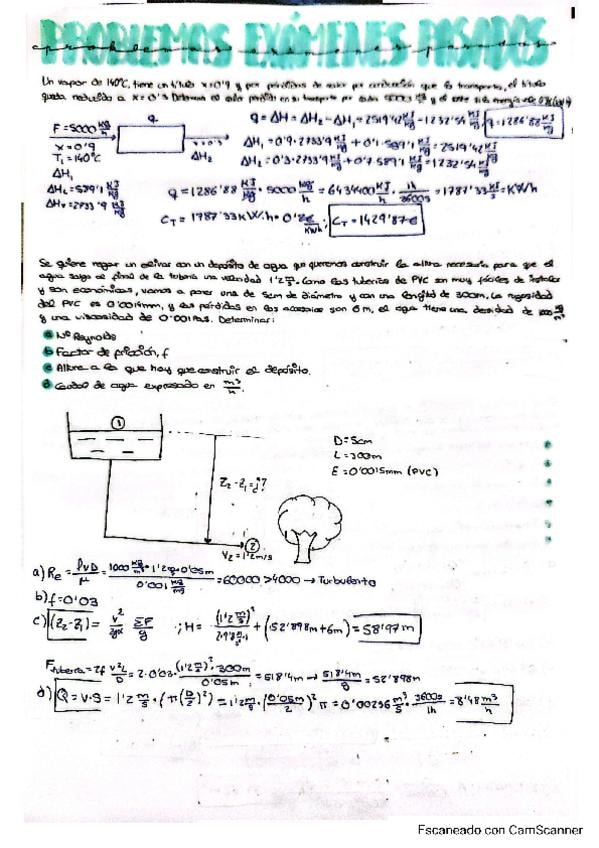 PROBLEMAS EXÁMENES PASADOS
problemas exámenes pasados
Un vapor de 140°C, tiene un título x=0'9 y por pérdidas de calor por que lo transporta, el título
queda reducido a x=0'3 Determina el calor perdido en su transporte por cada 5000 y el coste si la energía vale
F=5000 kg/h
x=0'9
T₁=140°C
ΔH₁
q
x=0'3
ΔH₂
ΔHL=589'1 kJ/kg
ΔHv=2733'9 kJ/kg
q=ΔH=ΔH₂-ΔH₁=2519'42 kJ/kg-1232'54 kJ/kg; q=1286'88 kJ/kg
ΔH₁=0'9·2733'9 kJ/kg+0'1·589'1 kJ/kg=2519'42 kJ/kg
ΔH₂=0'3·2733'9 kJ/kg+0'7·589'1 kJ/kg=1232'54 kJ/kg
q=1286'88 kJ/kg·5000 kg/h=6434400 kJ/h·1h/3600s=1787'33 kJ/s=KW/h
CT=1787'33KW/h·0'8€/KWh; CT=1429'87€
Se quiere regar un olivar con un depósito de agua que queremos construir la altura necesaria para que el
agua salga al final de la tubería una velocidad 1'2 m/s. Como las tuberías de PVC son muy fáciles de instalar
y son económicas, vamos a poner una de 5cm de diámetro y con una longitud de 300m. La rugosidad
del PVC es 0'0015mm, y las pérdidas en los accesorios son 6m, el agua tiene una densidad de 1000 kg/m³
y una viscosidad de 0'001Pas. Determinar:
a Nº Reynolds
b Factor de fricción, f
c Altura a la que hay que construir el depósito.
d Caudal de agua expresado en m³/h.
①
Z₂-Z₁=¿?
②
V₂=1'2m/s
D=5cm
L=300m
E=0'0015mm (PVC)
a) Re=ρvD/μ=1000 kg/m³·1'2 m/s·0'05m/0'001 =60000>4000→Turbulento
b) f=0'03
c) (Z₂-Z₁)=v²/2gα ΣF/g ; H=(1'2 m/s)²/2·9'8 +(52'898m+6m)=58'97m
Ftubería=2f v²L/D=2·0'03·(1'2 m/s)²·300m/0'05m=518'4m→518'4m/g=52'898m
d) Q=V·S=1'2 m/s·(π(D/2)²)=1'2 m/s·(0'05m/2)²π=0'00236 m³/s·3600s/1h=8'48 m³/h
Escaneado con CamScanner